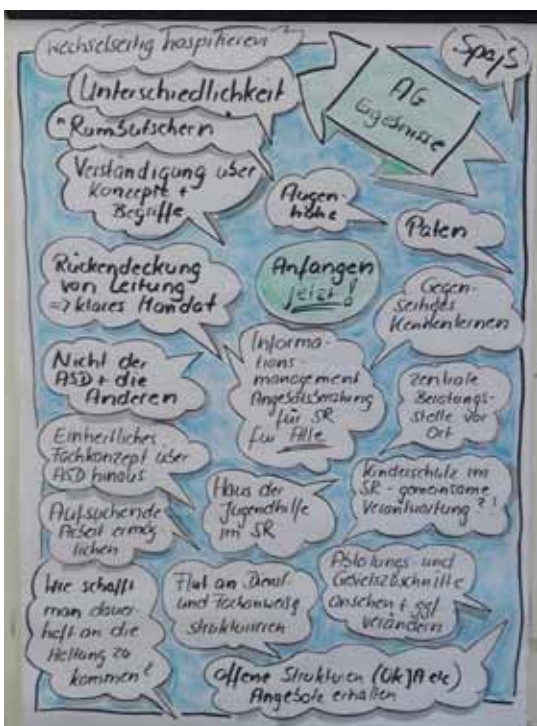 wechselseitig hospitieren
Spaß
Unterschiedlichkeit
AG
Ergebnisse
"Rumbutschern
Verständigung über
Konzepte +
Begriffe
Augen-
höhe
Paten
Rückendeckung
von Leitung
=> klares Mandat
Anfangen
jetzt!
Gegen-
seitiges
Kennenlernen
Informa-
tions-
management
Angebotsberatung
für SR
für Alle
Nicht der
ASD + die
Anderen
Zentrale
Beratungs-
stelle vor
Ort
Einheitliches
Fachkonzept über
ASD hinaus
Haus der
Jugendhilfe
im SR
Kinderschutz im
SR - gemeinsame
Verantwortung?!
Aufsuchende
Arbeit ermög
lichen
Wie schafft
man dauer-
haft an die
Haltung zu
kommen?
Flut an Dienst
und Fachanweisg
strukturieren
Abteilungs- und
Gebietszuschnitte
ansehen + ggf
verändern
offene Strukturen (OKJA etc)
Angebote erhalten